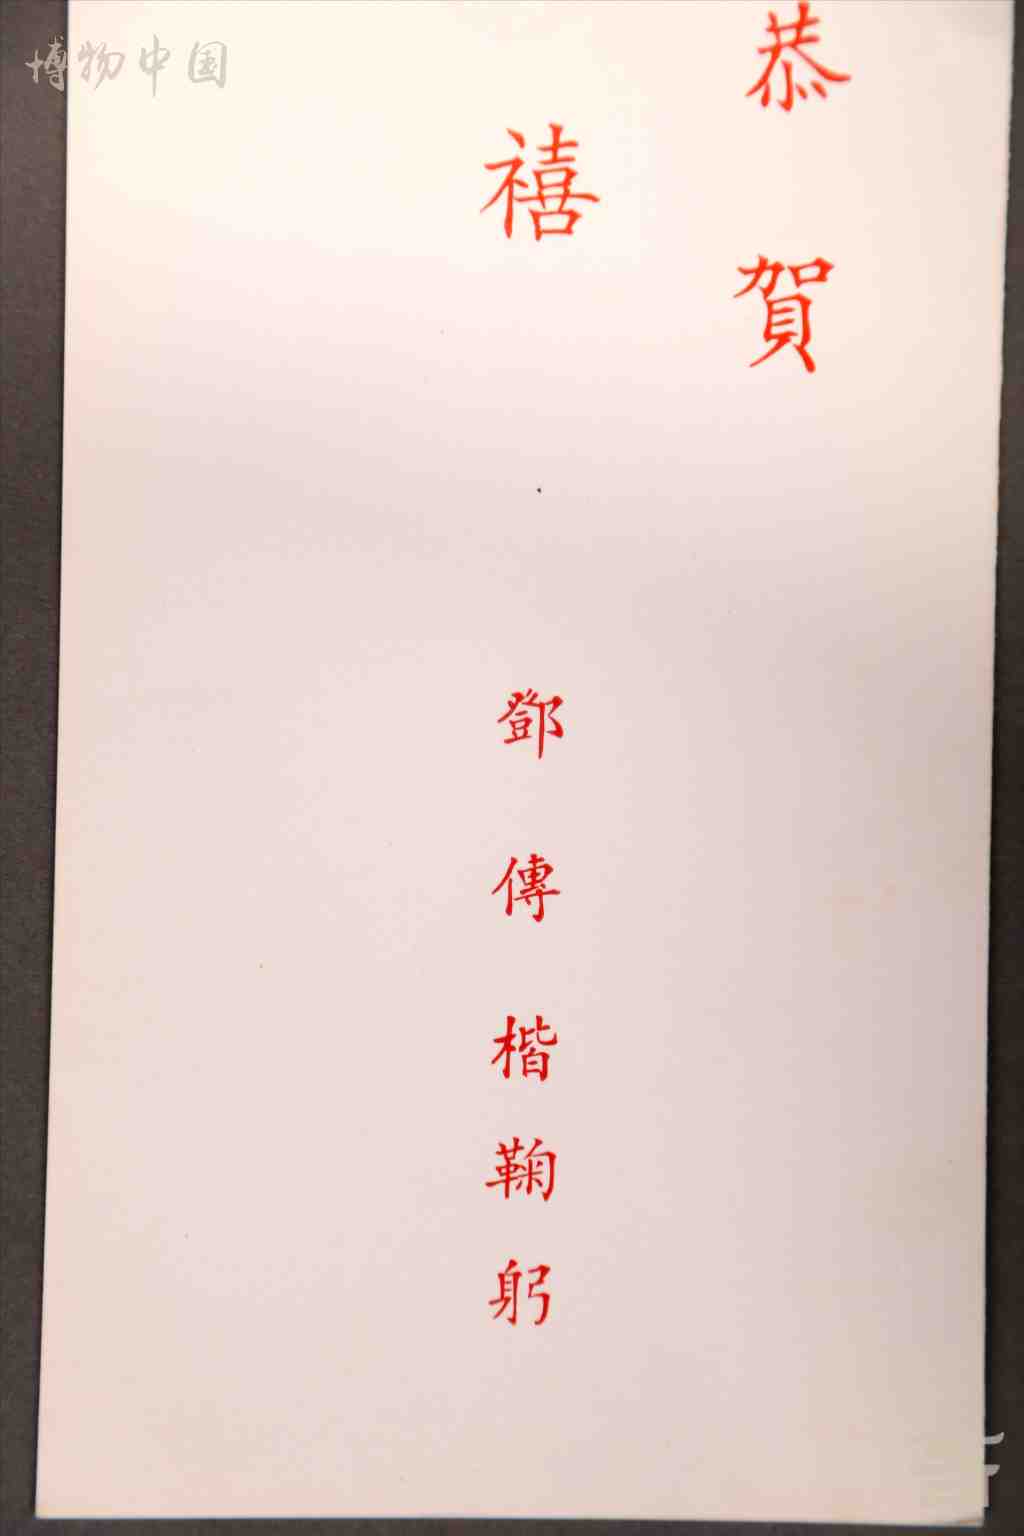 博物中国
恭賀
禧
鄧傳楷鞠躬